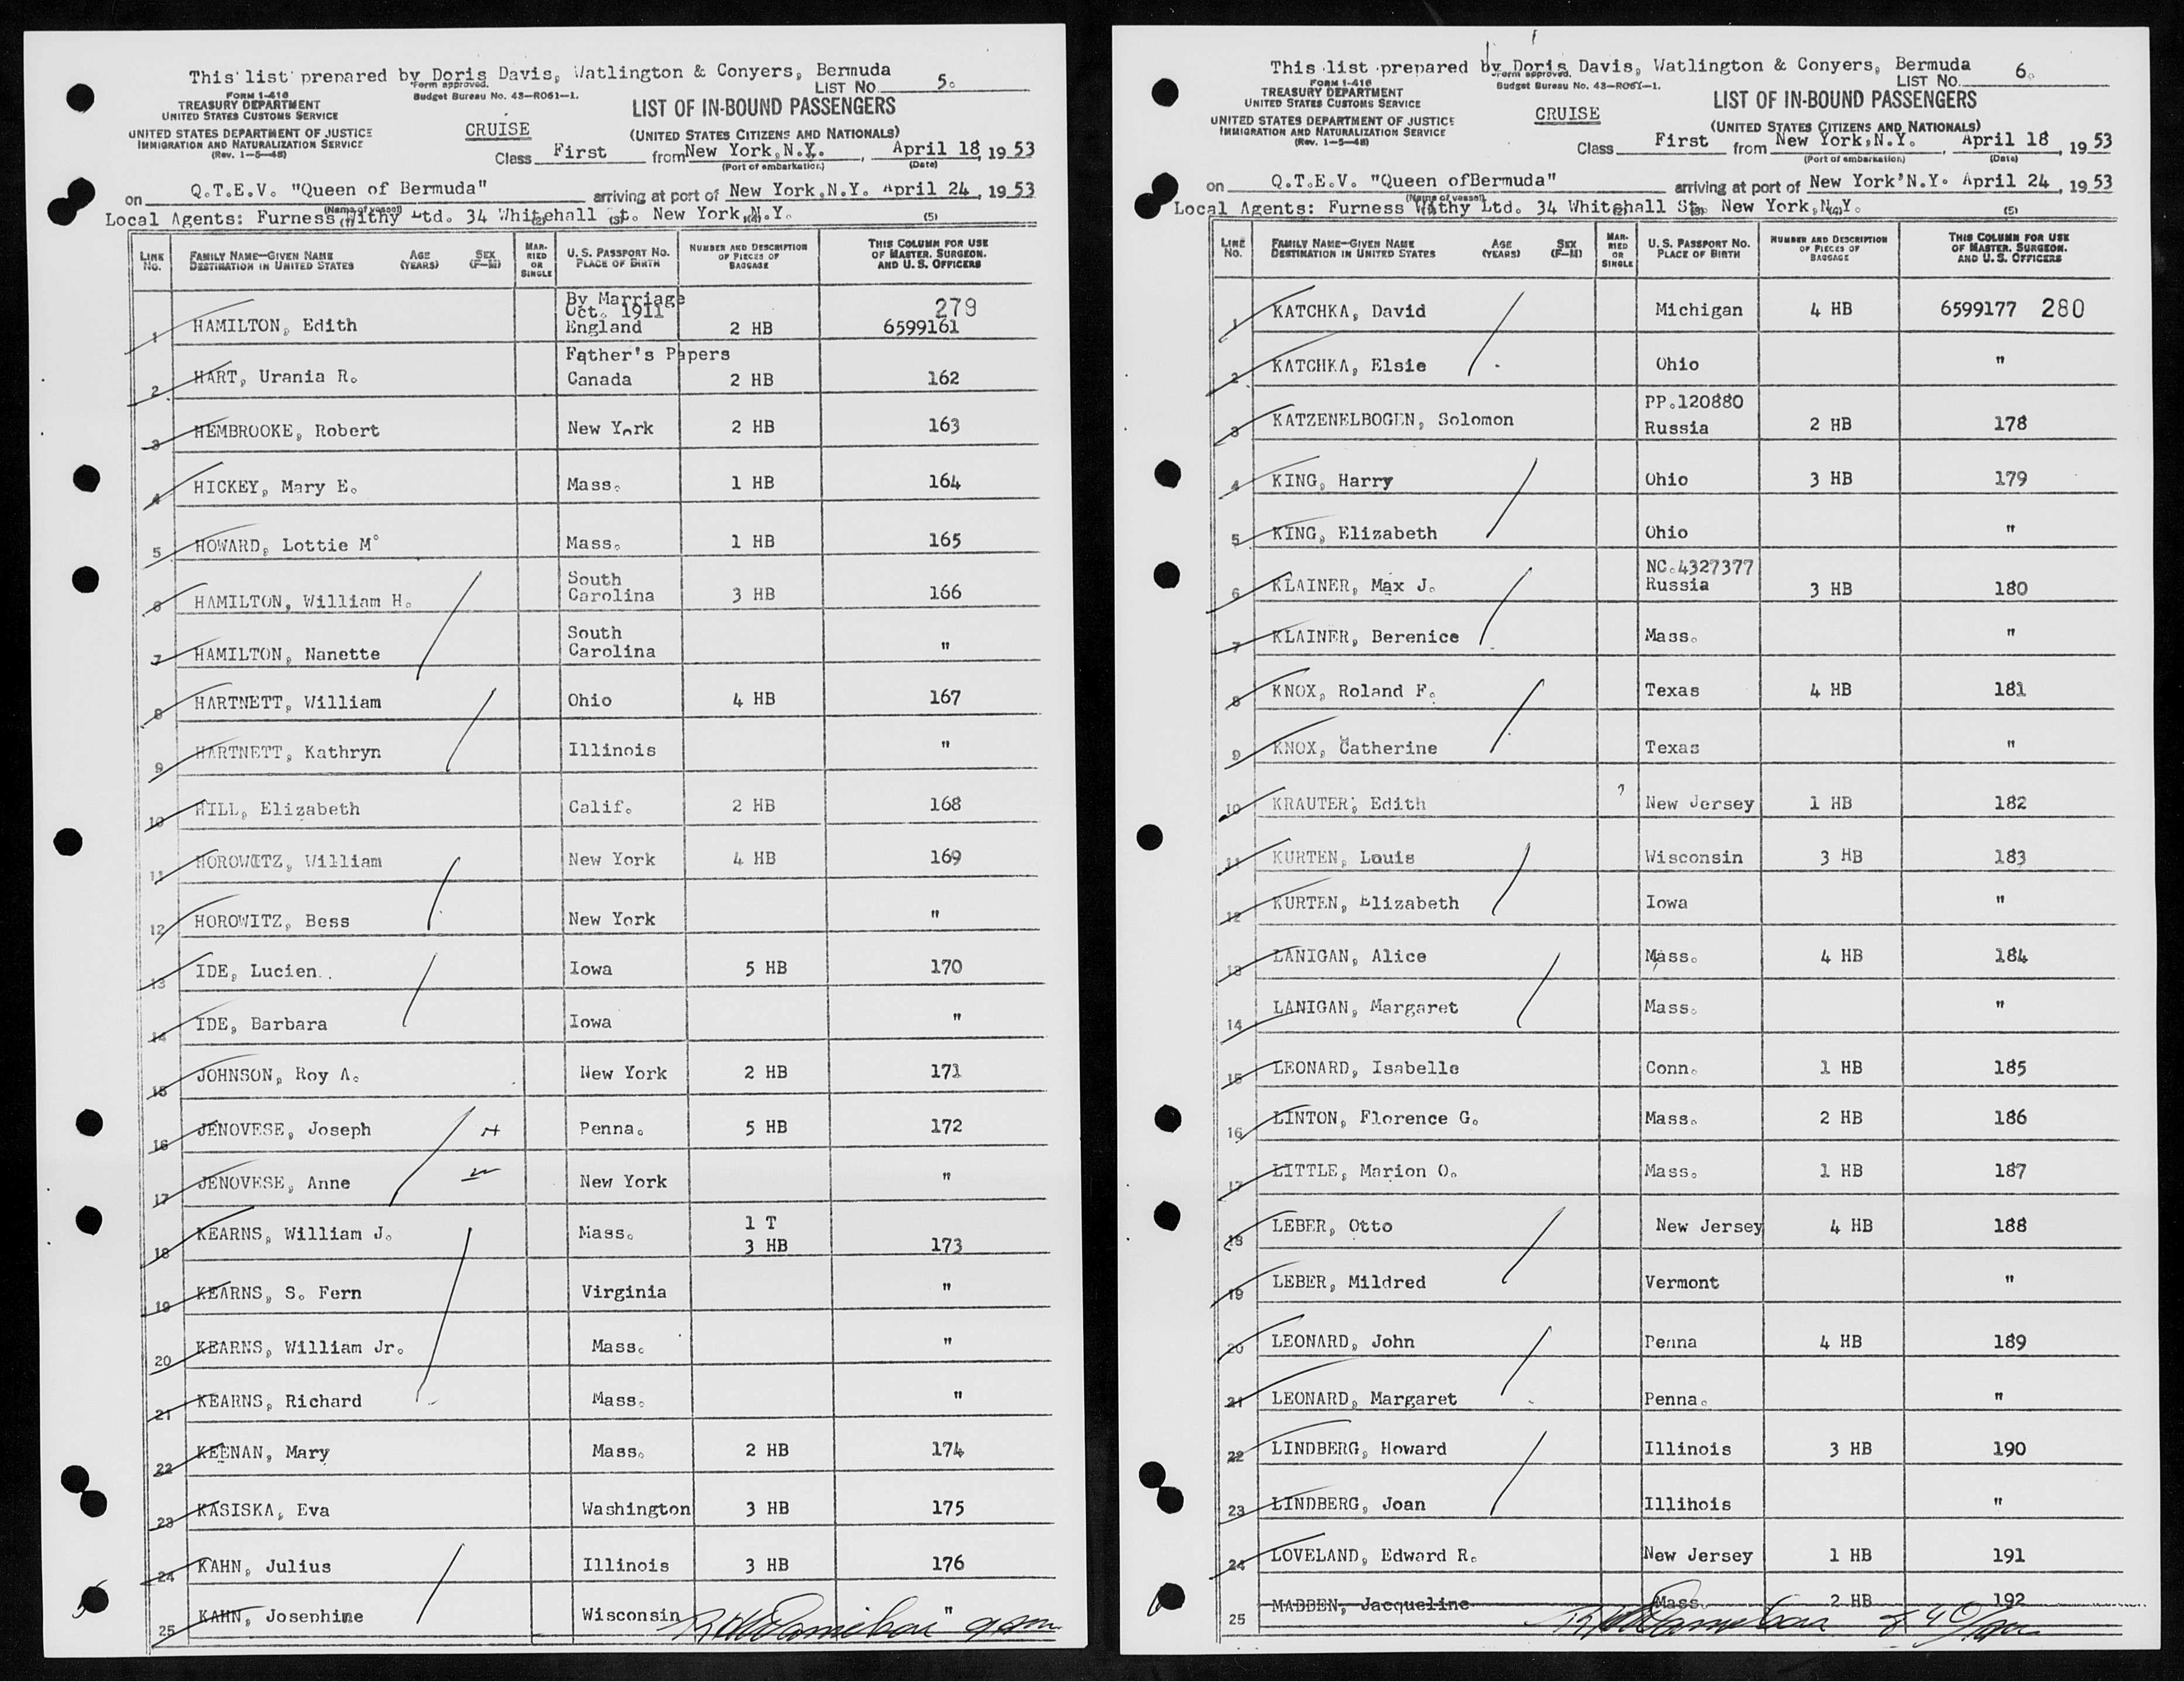 This list prepared by Doris Davis, Watlington & Conyers, Bermuda
Form approved.
FORM I-416
Budget Bureau No. 43-R061-1.
LIST NO. 5.
TREASURY DEPARTMENT
UNITED STATES CUSTOMS SERVICE
LIST OF IN-BOUND PASSENGERS
UNITED STATES DEPARTMENT OF JUSTICE
IMMIGRATION AND NATURALIZATION SERVICE
(Rev. 1-5-48)
CRUISE
(UNITED STATES CITIZENS AND NATIONALS)
Class First from New York, N.Y., April 18, 1953
(Port of embarkation) (Date)
on Q.T.E.V. "Queen of Bermuda" arriving at port of New York, N.Y. April 24, 1953
(Name of vessel)
Local Agents: Furness Withy Ltd. 34 Whitehall St. New York, N.Y.
(1) (2) (3) (4) (5)
LINE NO. FAMILY NAME—GIVEN NAME DESTINATION IN UNITED STATES AGE (YEARS) SEX (F-M) MARRIED OR SINGLE U.S. PASSPORT NO. PLACE OF BIRTH NUMBER AND DESCRIPTION OF PIECES OF BAGGAGE THIS COLUMN FOR USE OF MASTER, SURGEON, AND U. S. OFFICERS
By Marriage
Oct. 1911 279
1 HAMILTON, Edith England 2 HB 6599161
Father's Papers
2 HART, Urania R. Canada 2 HB 162
3 HEMBROOKE, Robert New York 2 HB 163
4 HICKEY, Mary E. Mass. 1 HB 164
5 HOWARD, Lottie M. Mass. 1 HB 165
6 HAMILTON, William H. South Carolina 3 HB 166
7 HAMILTON, Nanette South Carolina "
8 HARTNETT, William Ohio 4 HB 167
9 HARTNETT, Kathryn Illinois "
10 HILL, Elizabeth Calif. 2 HB 168
11 HOROWITZ, William New York 4 HB 169
12 HOROWITZ, Bess New York "
13 IDE, Lucien Iowa 5 HB 170
14 IDE, Barbara Iowa "
15 JOHNSON, Roy A. New York 2 HB 171
16 JENOVESE, Joseph H Penna. 5 HB 172
17 JENOVESE, Anne W New York "
18 KEARNS, William J. Mass. 1 T 3 HB 173
19 KEARNS, S. Fern Virginia "
20 KEARNS, William Jr. Mass. "
21 KEARNS, Richard Mass. "
22 KEENAN, Mary Mass. 2 HB 174
23 KASISKA, Eva Washington 3 HB 175
24 KAHN, Julius Illinois 3 HB 176
25 KAHN, Josephine Wisconsin "
5
This list prepared by Doris Davis, Watlington & Conyers, Bermuda
Form approved.
FORM I-416
Budget Bureau No. 43-R061-1.
LIST NO. 6.
TREASURY DEPARTMENT
UNITED STATES CUSTOMS SERVICE
LIST OF IN-BOUND PASSENGERS
UNITED STATES DEPARTMENT OF JUSTICE
IMMIGRATION AND NATURALIZATION SERVICE
(Rev. 1-5-48)
CRUISE
(UNITED STATES CITIZENS AND NATIONALS)
Class First from New York, N.Y., April 18, 1953
(Port of embarkation) (Date)
on Q.T.E.V. "Queen ofBermuda" arriving at port of New York'N.Y. April 24, 1953
(Name of vessel)
Local Agents: Furness Withy Ltd. 34 Whitehall St. New York, N.Y.
(1) (2) (3) (4) (5)
LINE NO. FAMILY NAME—GIVEN NAME DESTINATION IN UNITED STATES AGE (YEARS) SEX (F-M) MARRIED OR SINGLE U.S. PASSPORT NO. PLACE OF BIRTH NUMBER AND DESCRIPTION OF PIECES OF BAGGAGE THIS COLUMN FOR USE OF MASTER, SURGEON, AND U. S. OFFICERS
1 KATCHKA, David Michigan 4 HB 6599177 280
2 KATCHKA, Elsie Ohio "
PP.120880
3 KATZENELBOGEN, Solomon Russia 2 HB 178
4 KING, Harry Ohio 3 HB 179
5 KING, Elizabeth Ohio "
NC.4327377
6 KLAINER, Max J. Russia 3 HB 180
7 KLAINER, Berenice Mass. "
8 KNOX, Roland F. Texas 4 HB 181
9 KNOX, Catherine Texas "
10 KRAUTER, Edith New Jersey 1 HB 182
11 KURTEN, Louis Wisconsin 3 HB 183
12 KURTEN, Elizabeth Iowa "
13 LANIGAN, Alice Mass. 4 HB 184
14 LANIGAN, Margaret Mass. "
15 LEONARD, Isabelle Conn. 1 HB 185
16 LINTON, Florence G. Mass. 2 HB 186
17 LITTLE, Marion O. Mass. 1 HB 187
18 LEBER, Otto New Jersey 4 HB 188
19 LEBER, Mildred Vermont "
20 LEONARD, John Penna 4 HB 189
21 LEONARD, Margaret Penna. "
22 LINDBERG, Howard Illinois 3 HB 190
23 LINDBERG, Joan Illihois "
24 LOVELAND, Edward R. New Jersey 1 HB 191
25 MADDEN, Jacqueline Mass. 2 HB 192
6